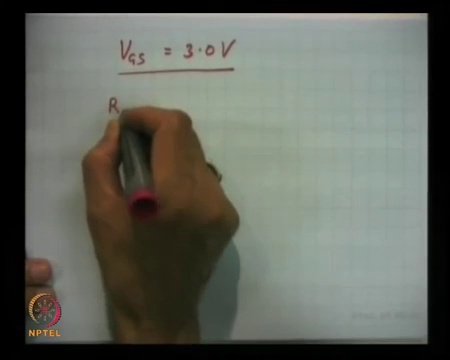 V_GS = 3.0 V
R
NPTEL